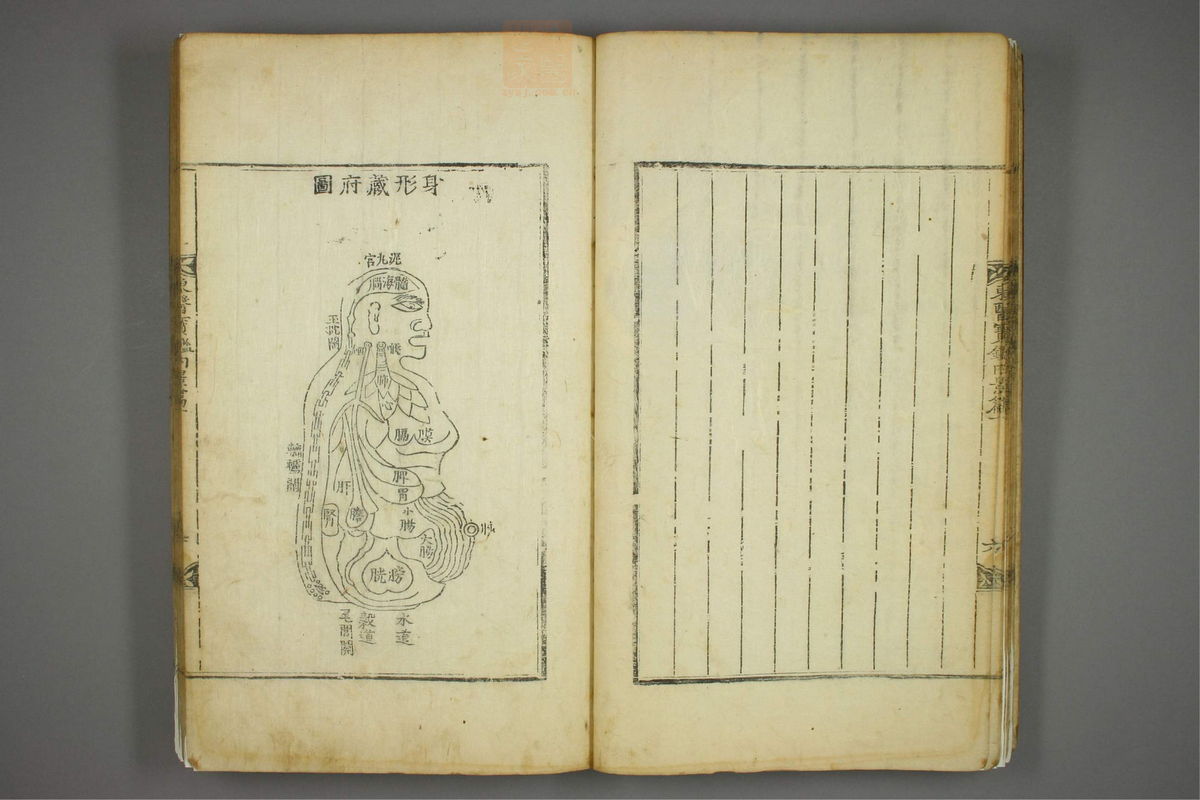 東醫寶鑑內景篇一
六
身形藏府圖
泥丸宮
髓海腦
玉枕關
咽
喉
肺
心
膈膜
轆轤關
脾
胃
肝
小腸
腎
膽
臍
大腸
膀胱
水道
穀道
尾閭關
東醫寶鑑內景篇